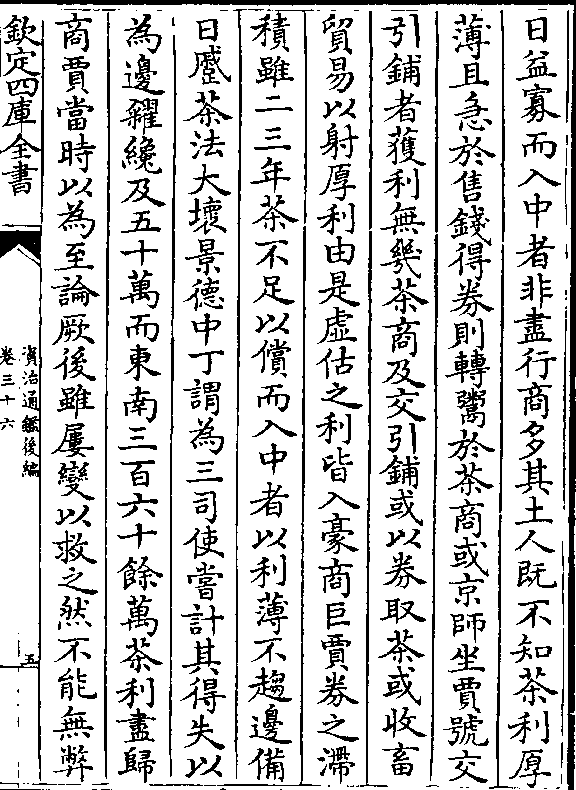 日益寡而入中者非盡行商多其土人既不知茶利厚
薄且急於售錢得券則轉鬻於茶商或京師坐賈號交
引鋪者獲利無幾茶商及交引鋪或以券取茶或收畜
貿易以射厚利由是虛估之利皆入豪商巨賈券之滯
積雖二三年茶不足以償而入中者以利薄不趨邊備
日蹙茶法大壞景德中丁謂為三司使嘗計其得失以
為邊糴纔及五十萬而東南三百六十餘萬茶利盡歸
商賈當時以為至論厥後雖屢變以救之然不能無弊
欽定四庫全書
資治通鑑後編
卷三十六
五